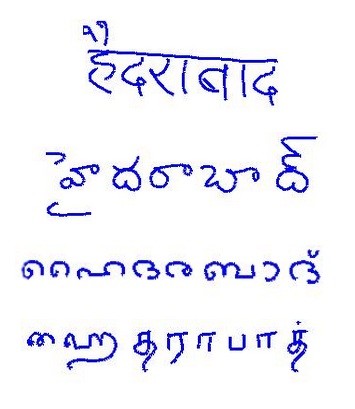 हैदराबाद
హైదరాబాద్
ഹൈദരബാദ്
ஹைதராபாத்